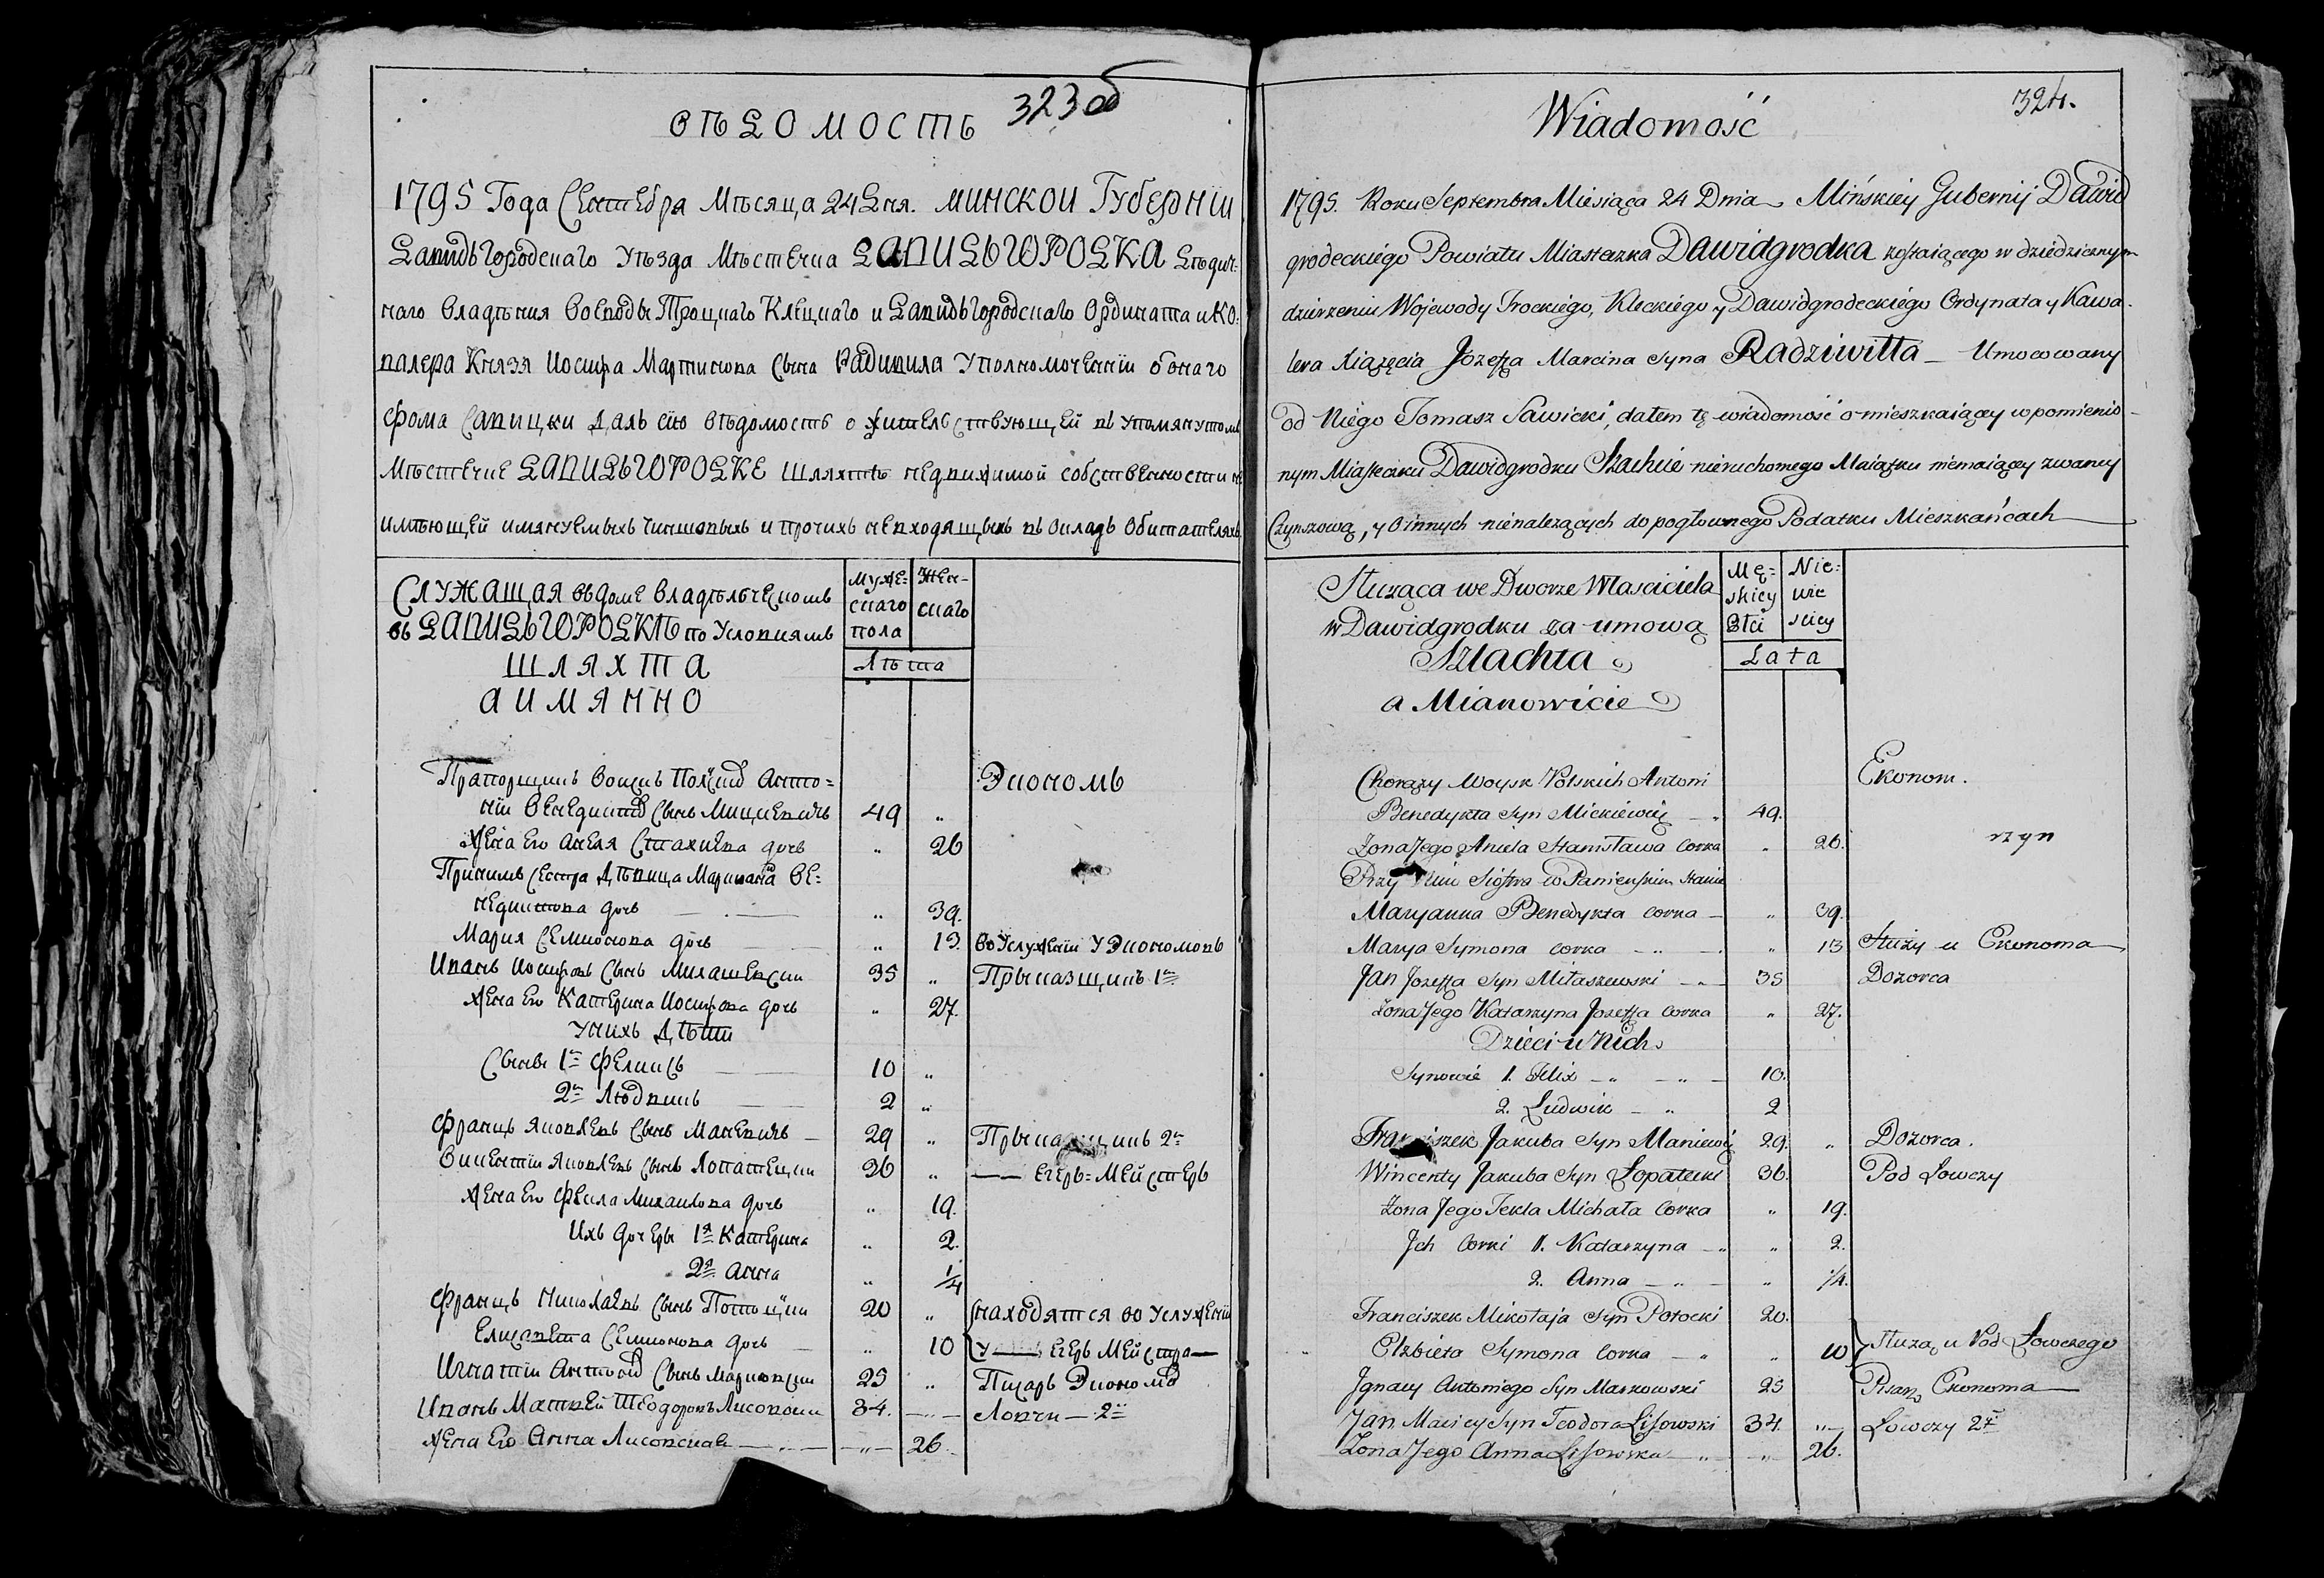 323 об
ВѢДОМОСТЬ
1795 Года Сентебра Мѣсяца 24 Дня. МИНСКОИ Губернїи
Давидъгородскаго Уѣзда Мѣстечка ДАВИДЪГОРОДКА Дѣдич:
наго Владѣния Воеводы Троцкаго Клецкаго и Давидъгородскаго Ордината и Ко:
валера Князя Иосифа Мартинова Сына Радивила Уполномоченнїи отонаго
Фома Савицки Далъ сїю вѣдомость о жительствующей въ упомянутомъ
Мѣстечке ДАВИДЪГОРОДКЕ шляхтѣ недвижимой собственности не
имѣющей имянуемыхъ чиншовыхъ и прочихъ невходящыхъ въ окладъ обитателяхъ
СЛУЖАЩАЯ въ доме владѣлческомъ
въ ДАВИДЪГОРОДКѢ по Условиямъ
ШЛЯХТА
А ИМЯННО
муже:
скаго
пола
Жен-
скаго
Лѣта
Прапорщикъ воискъ Полскихъ Анто=
нїи Венедиктов Сынъ Мицкевичъ 49 „ Экономъ
Жена Его Анеля Стахиева дочь „ 26
Принимъ Сестра Дѣвица Марианна Ве:
недиктова дочь „ 39.
Мария Семионова дочь „ 13. Во Услуженїи У Экономовъ
Иванъ Иосифовъ Сынъ Милашевски 35 „ Прыказщикъ 1й
Жена Его Катерина Иосифова дочь „ 27.
У нихъ Дѣти
Сыны 1й Феликсъ 10 „
2й Людвикъ 2 „
Францъ Яковлевъ Сынъ Маневичъ 29 „ Прыказщикъ 2й
Викентїи Яковлевъ Сынъ Лопатецки 26 „ Егерь=Мейстеръ
Жена Его Фекла Михаилова дочь „ 19.
Ихъ дочеры 1я Катерина „ 2.
2я Анна „ 1/4
Францъ Николаевъ Сынъ Потоцкїи 20 „ находятся во Услуженїи
Елисавета Семионова дочь „ 10 У Егеръ Мейстра
Игнатїи Антонов Сынъ Марковски 25 „ Писаръ Эконома
Иванъ Матвей Теодоровъ Лисовски 34. „ Ловчи 2й
Жена Его Анна Лисовская „ 26
324.
Wiadomość
1795. Roku Septembra Miesiąca 24 Dnia Mińskiey Gubernij Dawid
grodeckiego Powiatu Miasteczka Dawidgrodka zostaiącego w dziedzicznym
dzierzeniu Wojewody Trockiego, Kleckiego y Dawidgrodeckiego Ordynata y Kawa-
lera Xiążęcia Józeffa Marcina Syna Radziwiłła Umocowany
od Niego Tomasz Sawicki, dałem tę wiadomość o mieszkaiącey w pomienio-
nym Miasteczku Dawidgrodku Szlachcie nieruchomego Maiątku niemaiącey zwaney
Czynszową, y o innych nienależących do pogłownego Podatku Mieszkańcach
Służąca we Dworze Własciciela
w Dawidgrodku za umową
Szlachta
a Mianowicie
Mę:
skiey
Płci
Nie:
wie
sciey
Lata
Chorąży Woysk Polskich Antoni Ekonom.
Benedykta Syn Mickiewicz 49.
Żona Jego Aniela Stanisława Corka „ 26. rzyn
Przy Nim Siostra w Panieńskim Stanie
Maryanna Benedykta Corka „ 39.
Marya Symona Corka „ 13 Służy u Ekonoma
Jan Jozeffa Syn Miłaszewski 35 Dozorca
Żona Jego Katarzyna Jozeffa Corka „ 27.
Dzieci u Nich
Synowie 1. Felix 10.
2. Ludwik 2
Franciszek Jakuba Syn Maniewicz 29. „ Dozorca.
Wincenty Jakuba Syn Łopatecki 36. Pod Łowczy
Żona Jego Tekla Michała Corka „ 19.
Jch Corki 1. Katarzyna „ 2.
2. Anna „ 1/4.
Franciszek Mikołaja Syn Potocki 20.
Elżbieta Symona Corka „ 10 Służą u Pod Łowczego
Jgnacy Antoniego Syn Markowski 25 Pisarz Ekonoma
Jan Maciey Syn Teodora Lisowski 34. „ Łowczy 2gi
Żona Jego Anna Lisowska „ 26.